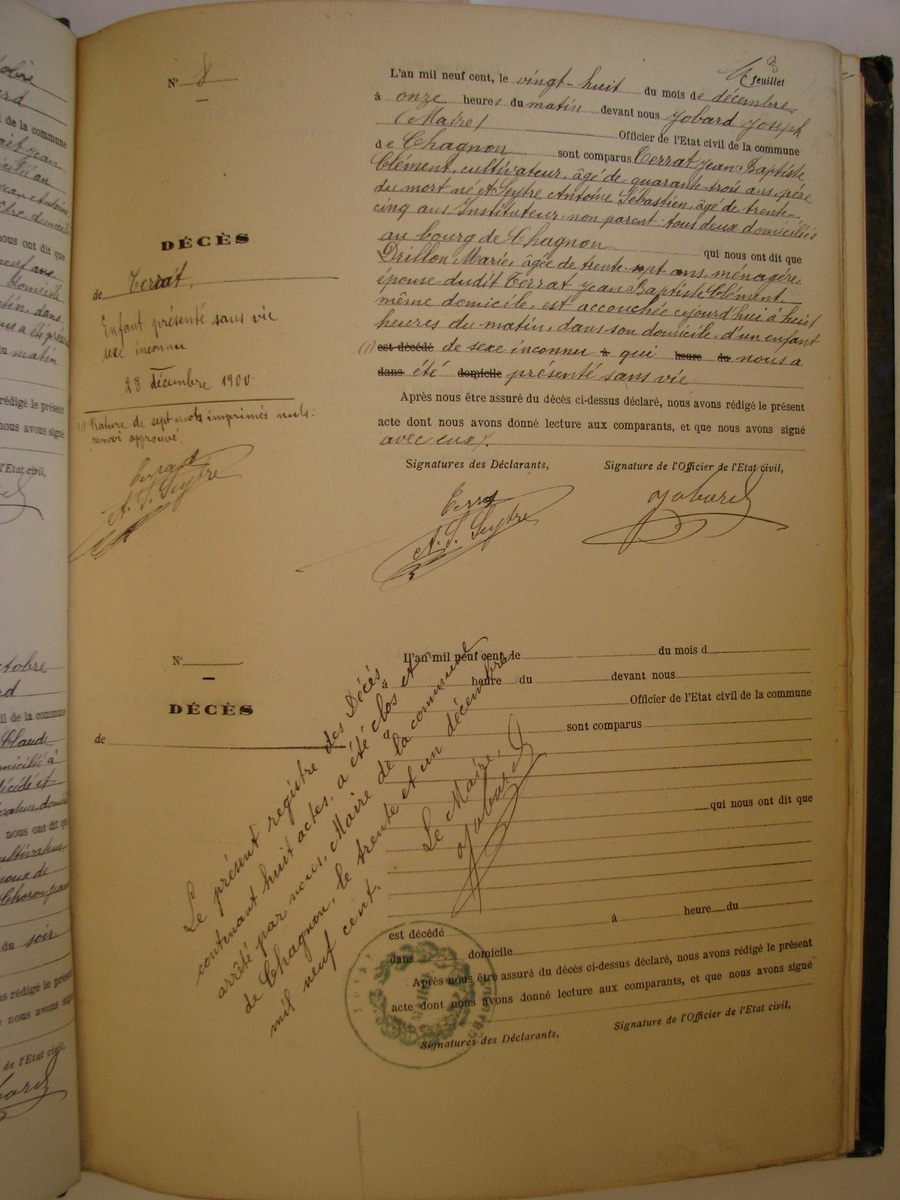 N° 8
DÉCÈS
de Terrat.
Enfant présenté sans vie
sexe inconnu
28 Décembre 1900.
Rature de sept mots imprimés nuls:
renvoi approuvé.
Terrat
A. S. Seytre
feuillet
L'an mil neuf cent, le vingt-huit du mois de décembre
à onze heures du matin devant nous Jobard Joseph
(Maire) Officier de l'Etat civil de la commune
de Chagnon sont comparus Terrat Jean Baptiste
Clément, cultivateur, âgé de quarante trois ans, père
du mort né et Seytre Antoine Sébastien, âgé de trente-
cinq ans Instituteur non parent tous deux domiciliés
au bourg de Chagnon qui nous ont dit que
Drillon Marie, âgée de trente-sept ans, ménagère,
épouse dudit Terrat Jean Baptiste Clément,
même domicile, est accouchée cejourd'hui à huit
heures du matin, dans son domicile, d'un enfant
(1) est décédé de sexe inconnu à qui heure du nous a
dans été domicile présenté sans vie
Après nous être assuré du décès ci-dessus déclaré, nous avons rédigé le présent
acte dont nous avons donné lecture aux comparants, et que nous avons signé
avec eux.
Signatures des Déclarants,
Signature de l'Officier de l'Etat civil,
Terrat
A. S. Seytre
Jobard
N°
DÉCÈS
de
L'an mil neuf cent, le du mois d
à heure du devant nous
Officier de l'Etat civil de la commune
d sont comparus
qui nous ont dit que
est décédé à heure du
dans domicile
Après nous être assuré du décès ci-dessus déclaré, nous avons rédigé le présent
acte dont nous avons donné lecture aux comparants, et que nous avons signé
Signatures des Déclarants,
Signature de l'Officier de l'Etat civil,
Le présent registre des Décès
contenant huit actes, a été clos et
arrêté par nous, Maire de la commune
de Chagnon, le trente et un décembre
mil neuf cent.
Le Maire,
Jobard